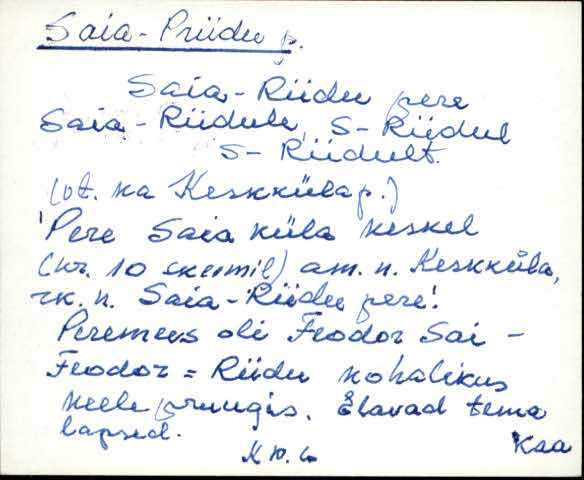 Saia-Priidu p.
Saia-Riidu pere
Saia-Riidule, S-Riidul
S-Riidult.
(vt. ka Keskküla p.)
'Pere Saia küla keskel
(nr. 10 skeemil) am. n. Keskküla,
rk. n. Saia-Riidu pere'.
Peremees oli Feodor Sai -
Feodor = Riidu kohalikus
keele pruugis. Elavad tema
lapsed.
Kaa